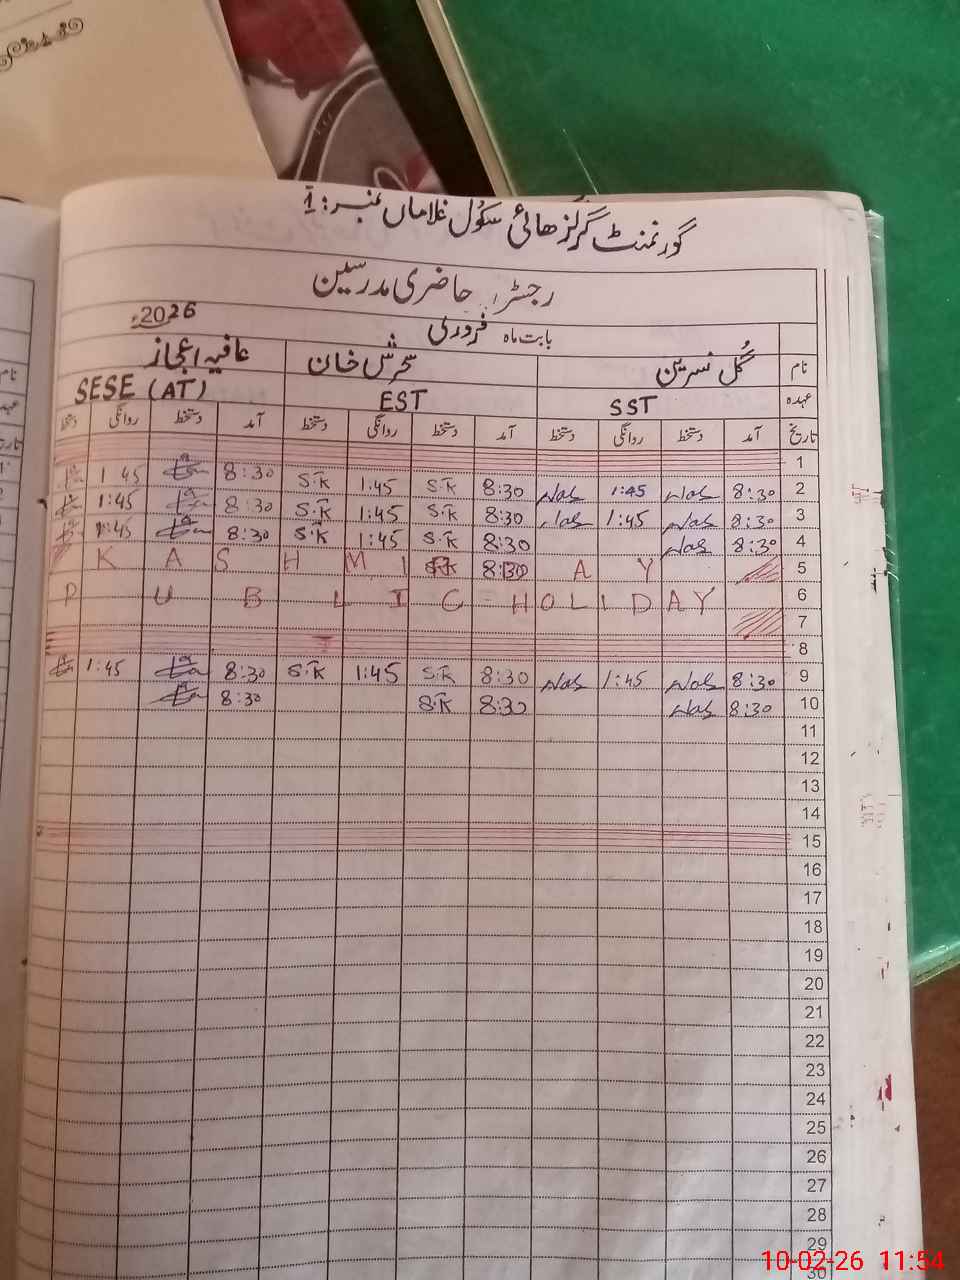 گورنمنٹ گرلز ھائی سکول غلاماں نمبر: 1
رجسٹر حاضری مدرسین
بابت ماہ فروری 2026ء
نام گل نسرین سحرش خان عافیہ اعجاز
عہدہ SST EST SESE (AT)
تاریخ آمد دستخط روانگی دستخط آمد دستخط روانگی دستخط آمد دستخط روانگی دستخط
1
2 8:30 Nas 1:45 Nas 8:30 S.K 1:45 S.K 8:30 1:45
3 8:30 Nas 1:45 Nas 8:30 S.K 1:45 S.K 8:30 1:45
4 8:30 Nas 8:30 S.K 1:45 S.K 8:30 1:45
5 KASHMIR DAY 8:30
6 PUBLIC HOLIDAY
7
8
9 8:30 Nas 1:45 Nas 8:30 S.K 1:45 S.K 8:30 1:45
10 8:30 Nas 8:30 S.K 8:30
11
12
13
14
15
16
17
18
19
20
21
22
23
24
25
26
27
28
29
30
10-02-26 11:54